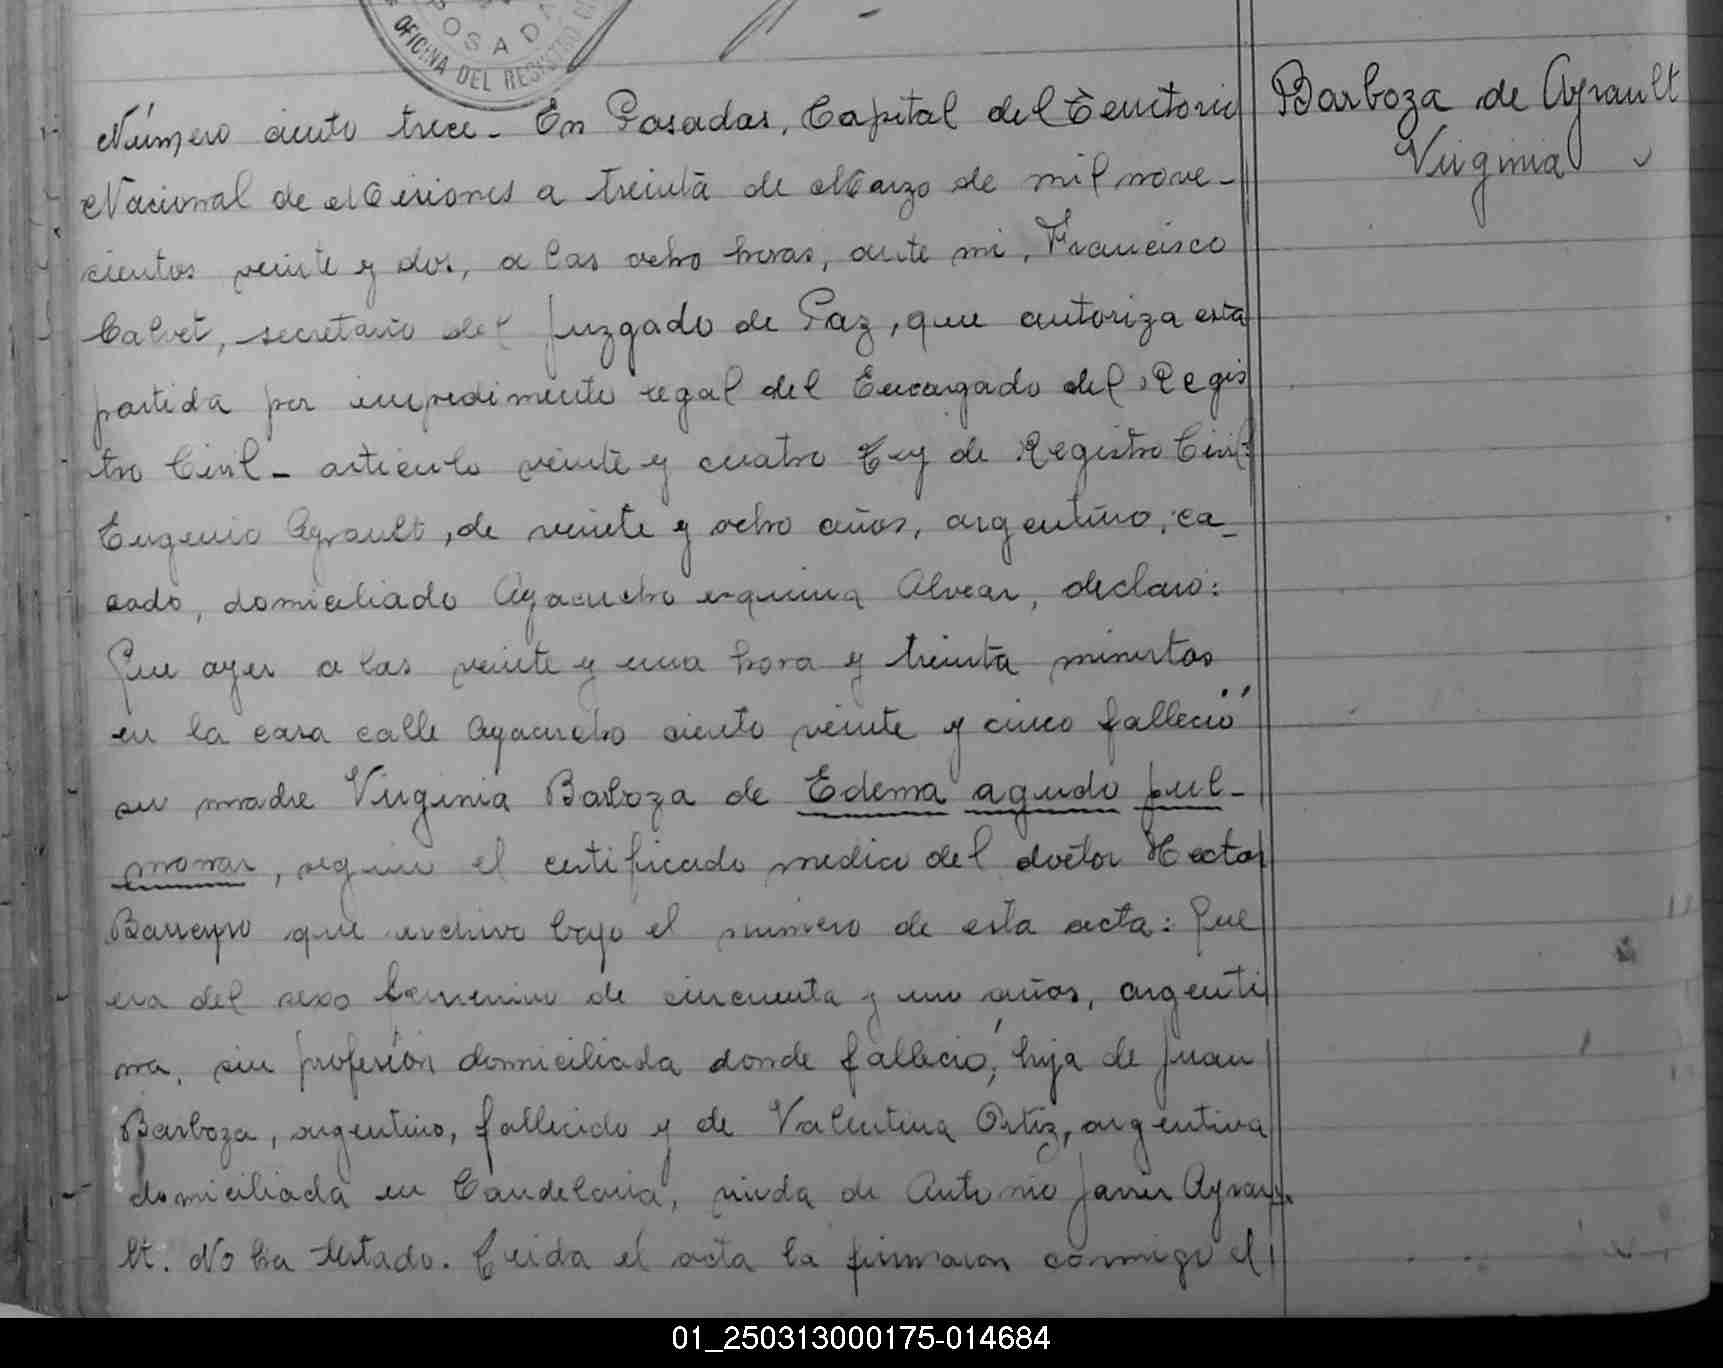 POSADAS
OFICINA DEL REGISTRO
Barboza de Ayrault
Virginia
Número ciento trece. En Posadas, Capital del Territorio
Nacional de Misiones a treinta de Marzo de mil nove-
cientos veinte y dos, a las ocho horas, ante mi, Francisco
Calvet, secretario del Juzgado de Paz, que autoriza esta
partida por impedimento legal del Encargado del Regis
tro Civil - articulo veinte y cuatro Ley de Registro Civil:
Eugenio Ayrault, de veinte y ocho años, argentino, ca-
sado, domiciliado Ayacucho esquina Alvear, declaró:
Que ayer a las veinte y una hora y treinta minutos
en la casa calle Ayacucho ciento veinte y cinco falleció
su madre Virginia Barboza de Edema agudo pul-
monar, segun el certificado medico del doctor Hector
Barreyro que archivo bajo el número de esta acta: Que
era del sexo femenino de cincuenta y un años, argenti
na, sin profesión domiciliada donde falleció, hija de Juan
Barboza, argentino, fallecido y de Valentina Ortiz, argentina
domiciliada en Candelaria, viuda de Antonio Javier Ayrau-
lt. No ha testado. Leida el acta la firmaron conmigo el
01_250313000175-014684